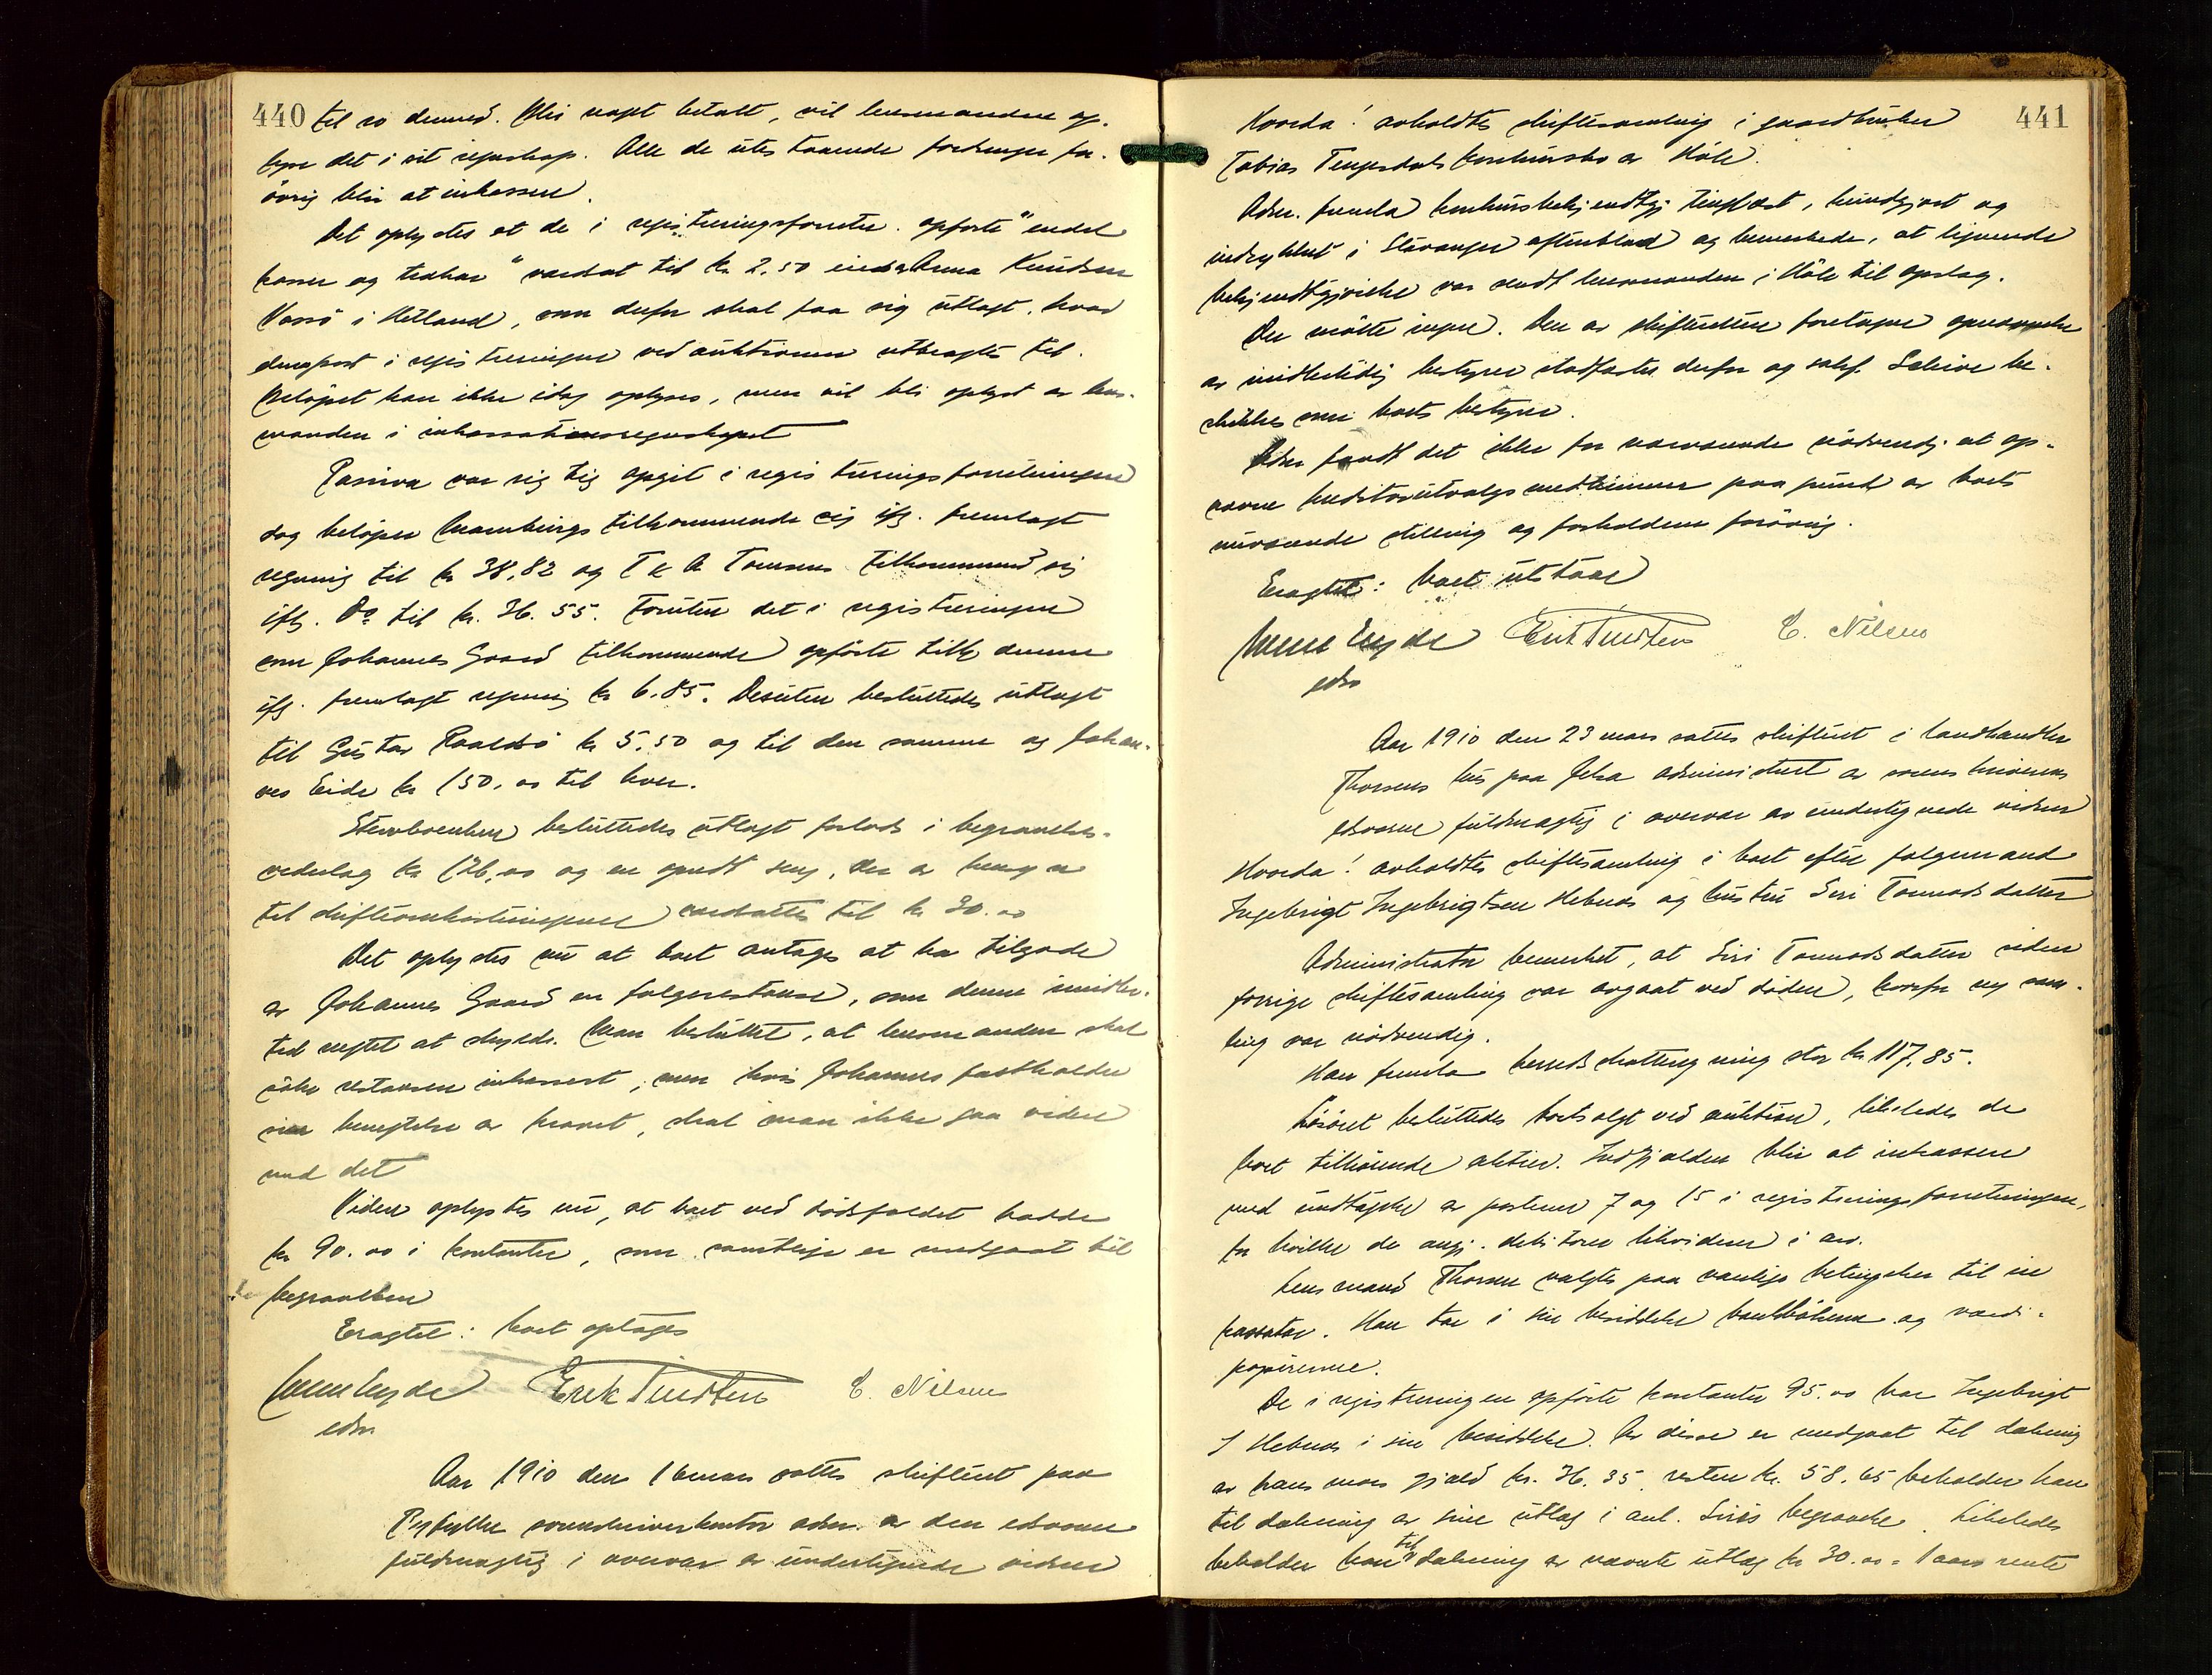 440
til so dermed. Blir noget betalt, vil lensmanden op-
føre det i sit regnskap. Alle de utestaaende fordringer for-
øvrig blir at inkassere.
Det oplystes at de i registreringsforretn. opførte "endel
kasser og trækar" værdsat til kr 2.50 eies av Anna Knudsen
Vassø i Hetland, som derfor skal faa sig utlagt, hvad
denne post i registreringen ved auktionen utbragtes til.
Beløpet kan ikke idag oplyses, men vil bli oplyst av lens-
manden i inkassationsregnskapet
Passiva var rigtig opgit i registreringsforretningen
dog beløper tilkommende sig iflg. fremlagt
regning til kr 38,82 og T & A tilkommende sig
iflg. Do til kr. 36.55. Foruten det i registreringen
som Johannes Gaard tilkommende opførte tilk. denne
iflg. fremlagt regning kr 6.85. Desuten besluttedes utlagt
til Gustav kr 5.50 og til den samme og Johan-
nes Eide kr 150.00 til hver.
Stervboenken besluttedes utlagt forlods i begravelses-
vederlag kr 126,00 og en opredt seng, der av hensyn
til skifteomkostningerne værdsattes til kr 30.00
Det oplystes nu at boet antages at ha tilgode
av Johannes Gaard en følgerestanse, som denne imidler-
tid negtet at skylde. Man besluttet, at lensmanden skal
søke restansen inkassert, men hvis Johannes fastholder
sin benegtelse av kravet, skal man ikke gaa videre
med det
Videre oplystes nu, at boet ved dødsfaldet hadde
kr 90.00 i kontanter, som samtlige er medgaat til
begravelsen
Eragtet: boet optages
Erik Tuedten E. Nilsen
edsv.
Aar 1910 den 16 mars sattes skifteret paa
Ryfylke sorenskriverkontor adm. av den edsvorne
fuldmægtig i overvær av undertegnede vidner
441
Hvorda! avholdtes skiftesamling i gaardbruker
Tobias Tengesdals konkursbo av Høle.
Adm. fremla konkursbekjendtgj. tinglæst, kundgjort og
indrykket i Stavanger aftenblad og bemerkede, at lignende
bekjendtgjørelse var sendt lensmanden i Høle til opslag.
Der møtte ingen. Den av skifteretten foretagne opnævnelse
av midlertidig bestyrer stadfæstes derfor og sakf. be-
skikkes som boets bestyrer.
Adm fandt det ikke for nærværende nødvendig at op-
nævne kreditorutvalgsmedlemmer paa grund av boets
nuværende stilling og forholdene forøvrig.
Eragtet: boet utstaar
Erik Tuedten E. Nilsen
edsv
Aar 1910 den 23 mars sattes skifteret i landhandler
Thorsens hus paa Jelsa administrert av sorenskriverens
edsvorne fuldmægtig i overvær av undertegnede vidner
Hvorda! avholdtes skiftesamling i boet efter følgemand
Ingebrigt Ingebrigtsen Hebnes og hustru Siri Tormodsdatter
Administrator bemerket, at Siri Tormodsdatter siden
forrige skiftesamling var avgaat ved døden, hvorfor ny sam-
ling var nødvendig.
Han fremla herredsskatteregning stor kr 117,85.
Løsøret besluttedes bortsolgt ved auktion, likeledes de
boet tilhørende aktier. Indgjælden blir at inkassere
med undtagelse av posterne 7 og 15 i registreringsforretningen,
for hvilke de angj. debitorer likviderer i arv.
Lensmand Thorsen valgtes paa vanlige betingelser til in
kassator. Han tar i sin besiddelse bankbøkerne og værdi-
papirerne.
De i registreringen opførte kontanter 95.00 har Ingebrigt
I Hebnes i sin besiddelse. Av disse er medgaat til dækning
av hans mors gjæld kr. 36.35, resten kr. 58,65 beholder han
til dækning av sine utlæg i anl. Siris begravelse. Likeledes
beholder han til dækning av nævnte utlæg kr 30.00 = 1 aars rente